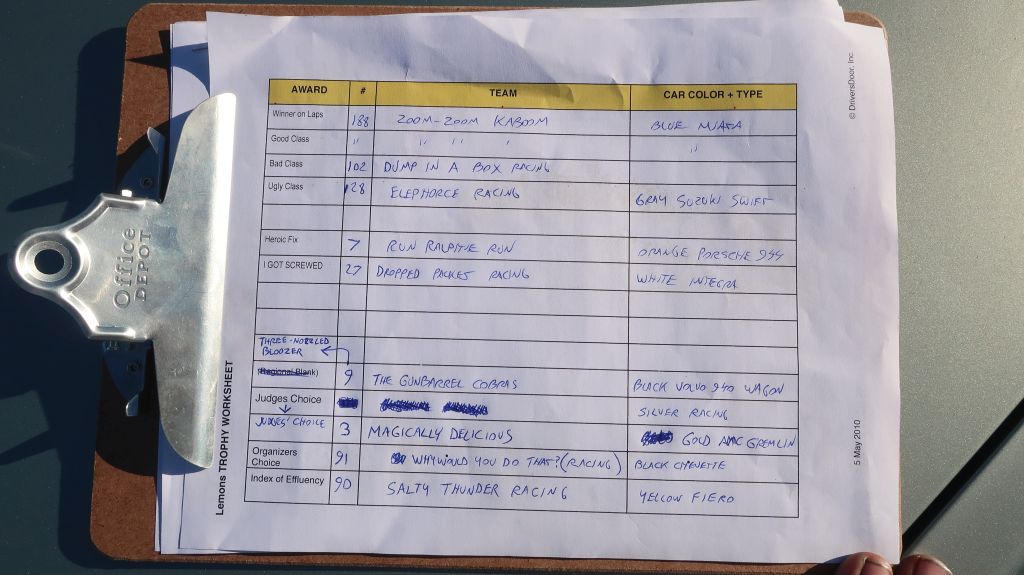 Office
DEPOT
© DriversDoor, Inc.
5 May 2010
Lemons TROPHY WORKSHEET
AWARD # TEAM CAR COLOR + TYPE
Winner on Laps 188 ZOOM-ZOOM KABOOM BLUE MIATA
Good Class " " " " "
Bad Class 102 DUMP IN A BOX RACING
Ugly Class 128 ELEPHORCE RACING GRAY SUZUKI SWIFT
Heroic Fix 7 RUN RALPHIE RUN ORANGE PORSCHE 944
I GOT SCREWED 27 DROPPED PACKET RACING WHITE INTEGRA
THREE-NOZZLED
BLOOZER
(Regional Blank) 9 THE GUNBARREL COBRAS BLACK VOLVO 940 WAGON
Judges Choice SILVER RACING
JUDGES' CHOICE 3 MAGICALLY DELICIOUS GOLD AMC GREMLIN
Organizers
Choice 91 WHY WOULD YOU DO THAT? (RACING) BLACK CHEVETTE
Index of Effluency 90 SALTY THUNDER RACING YELLOW FIERO